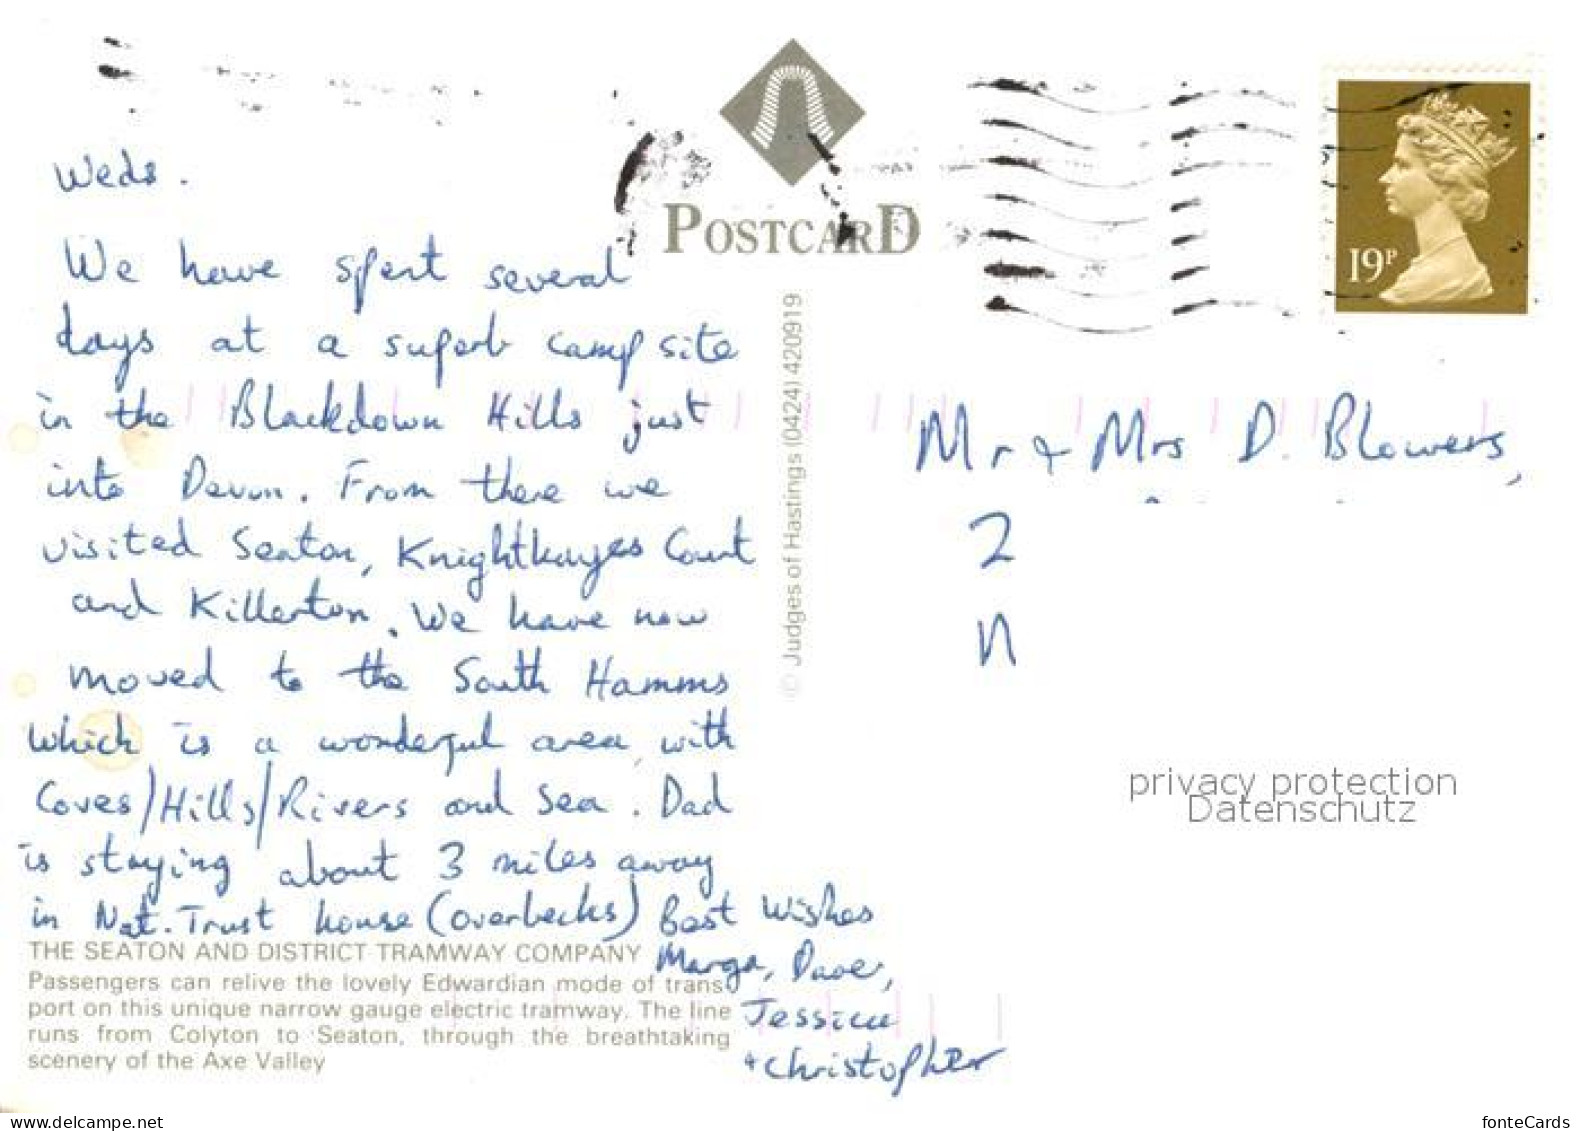 Weds.
We have spent several
days at a superb camp site
in the Blackdown Hills just
into Devon. From there we
visited Seaton, Knightkayes Court
and Killerton. We have now
moved to the South Hamms
which is a wonderful area with
Coves/Hills/Rivers and Sea. Dad
is staying about 3 miles away
in Nat. Trust house (overbecks) Best Wishes
Marga, Dave,
Jessica
+ Christopher
THE SEATON AND DISTRICT TRAMWAY COMPANY
Passengers can relive the lovely Edwardian mode of trans
port on this unique narrow gauge electric tramway. The line
runs from Colyton to Seaton, through the breathtaking
scenery of the Axe Valley
POSTCARD
© Judges of Hastings (0424) 420919
19P
Mr & Mrs D. Blowers,
2
n
privacy protection
Datenschutz
www.delcampe.net
fonteCards